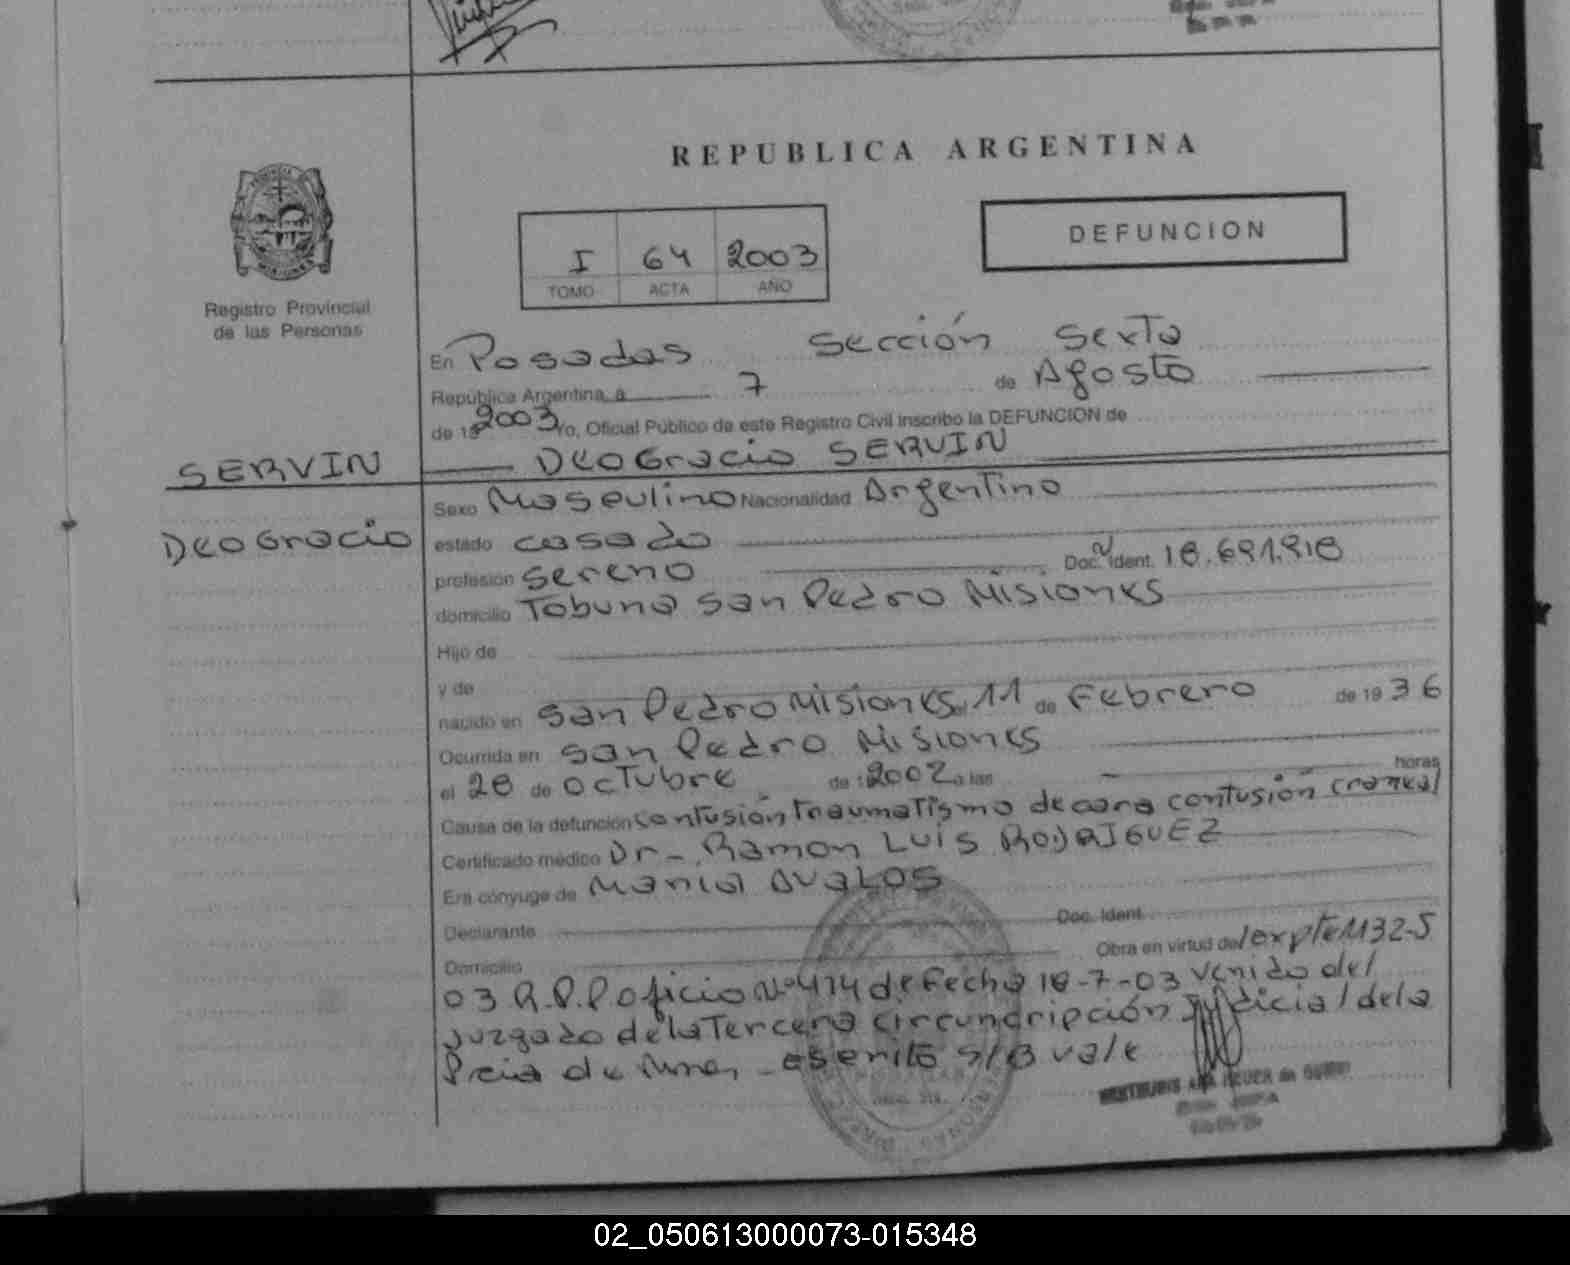 REPUBLICA ARGENTINA
DEFUNCION
I 64 2003
TOMO ACTA AÑO
Registro Provincial
de las Personas
En Posadas Sección Sexta
República Argentina, a 7 de Agosto
de 19 2003 Yo, Oficial Público de este Registro Civil inscribo la DEFUNCION de
SERVIN
DeoGracio SERVIN
DeoGracio
Sexo Masculino Nacionalidad Argentino
estado casado
profesión sereno Doc. Ident. 18.691.918
domicilio Tobuna San Pedro Misiones
Hijo de
y de
nacido en San Pedro Misiones el 11 de Febrero de 19 36
Ocurrida en San Pedro Misiones
el 28 de Octubre de 2002 a las - horas
Causa de la defunción contusión traumatismo de cara contusión craneal
Certificado médico Dr - Ramon Luis RODRIGUEZ
Era cónyuge de Maria AVALOS
Declarante Doc. Ident.
Domicilio Obra en virtud del expte 1132-S
03 R.P.P oficio Nº 414 de Fecha 18-7-03 venido del
Juzgado de la Tercera circundripción Judicial de la
Pcia de Mnes, - escrito s/B vale
02_050613000073-015348